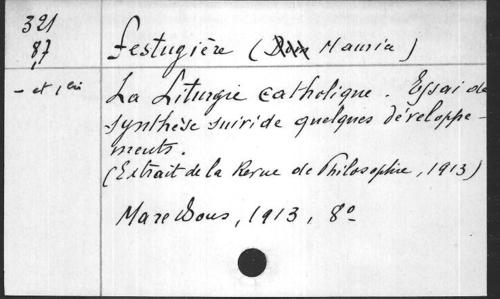 321
87
Festugière (Dom Mauria)
- et, en
La Liturgie catholique. Essai de
synthèse suivi de quelques développe-
ments.
(Extrait de la Revue de Philosophie, 1913)
Maredsous, 1913, 8º